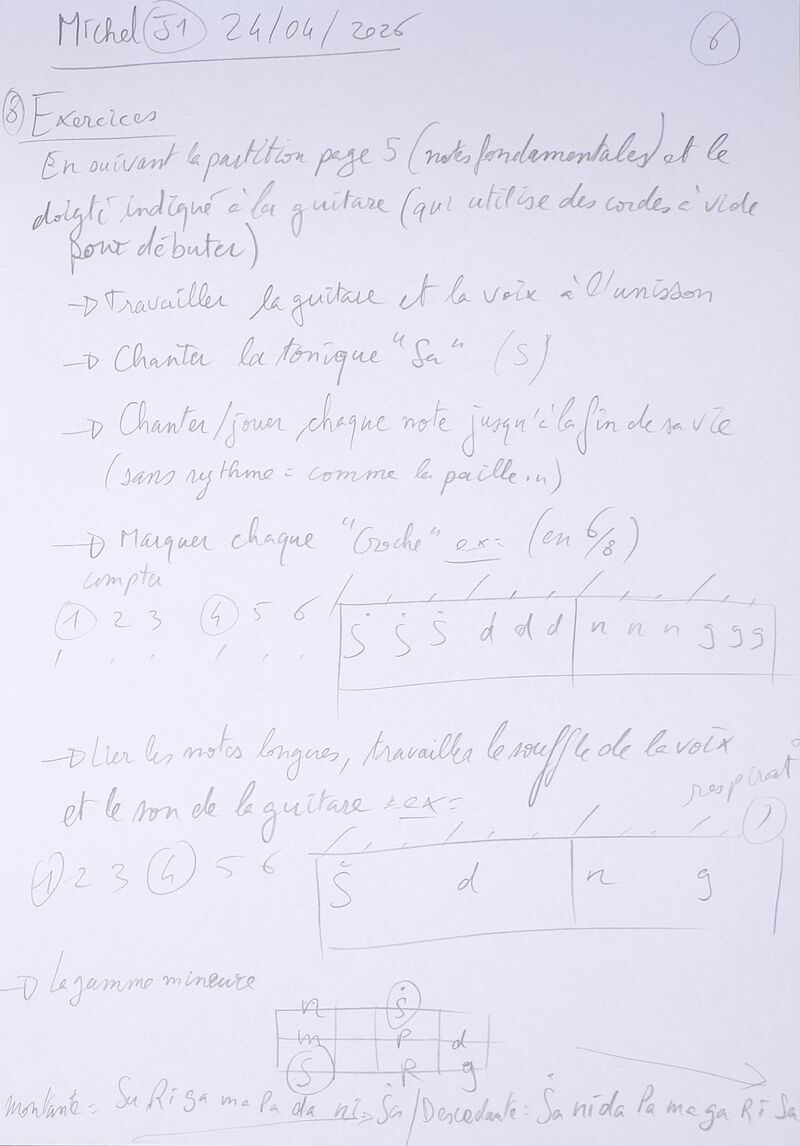 Michel J1 24/04/2026
6
8 Exercices
En suivant la partition page 5 (notes fondamentales) et le
doigté indiqué à la guitare (qui utilise des cordes à vide
pour débuter)
→ Travailler la guitare et la voix à l'unisson
→ Chanter la tonique "Sa" (S)
→ Chanter/jouer chaque note jusqu'à la fin de sa vie
(sans rythme = comme la paille...)
→ Marquer chaque "Croche" ex = (en 6/8)
compter
1 2 3 4 5 6
Ṡ Ṡ Ṡ d d d n n n g g g
→ Lier les notes longues, travailler le souffle de la voix
respirat°
et le son de la guitare ex =
1 2 3 4 5 6
Ṡ d n g
→ La gamme mineure
n Ṡ
m P d
S R g
montante = Sa Ri ga ma Pa da ni Ṡa / Descendante : Ṡa ni da Pa ma ga Ri Sa